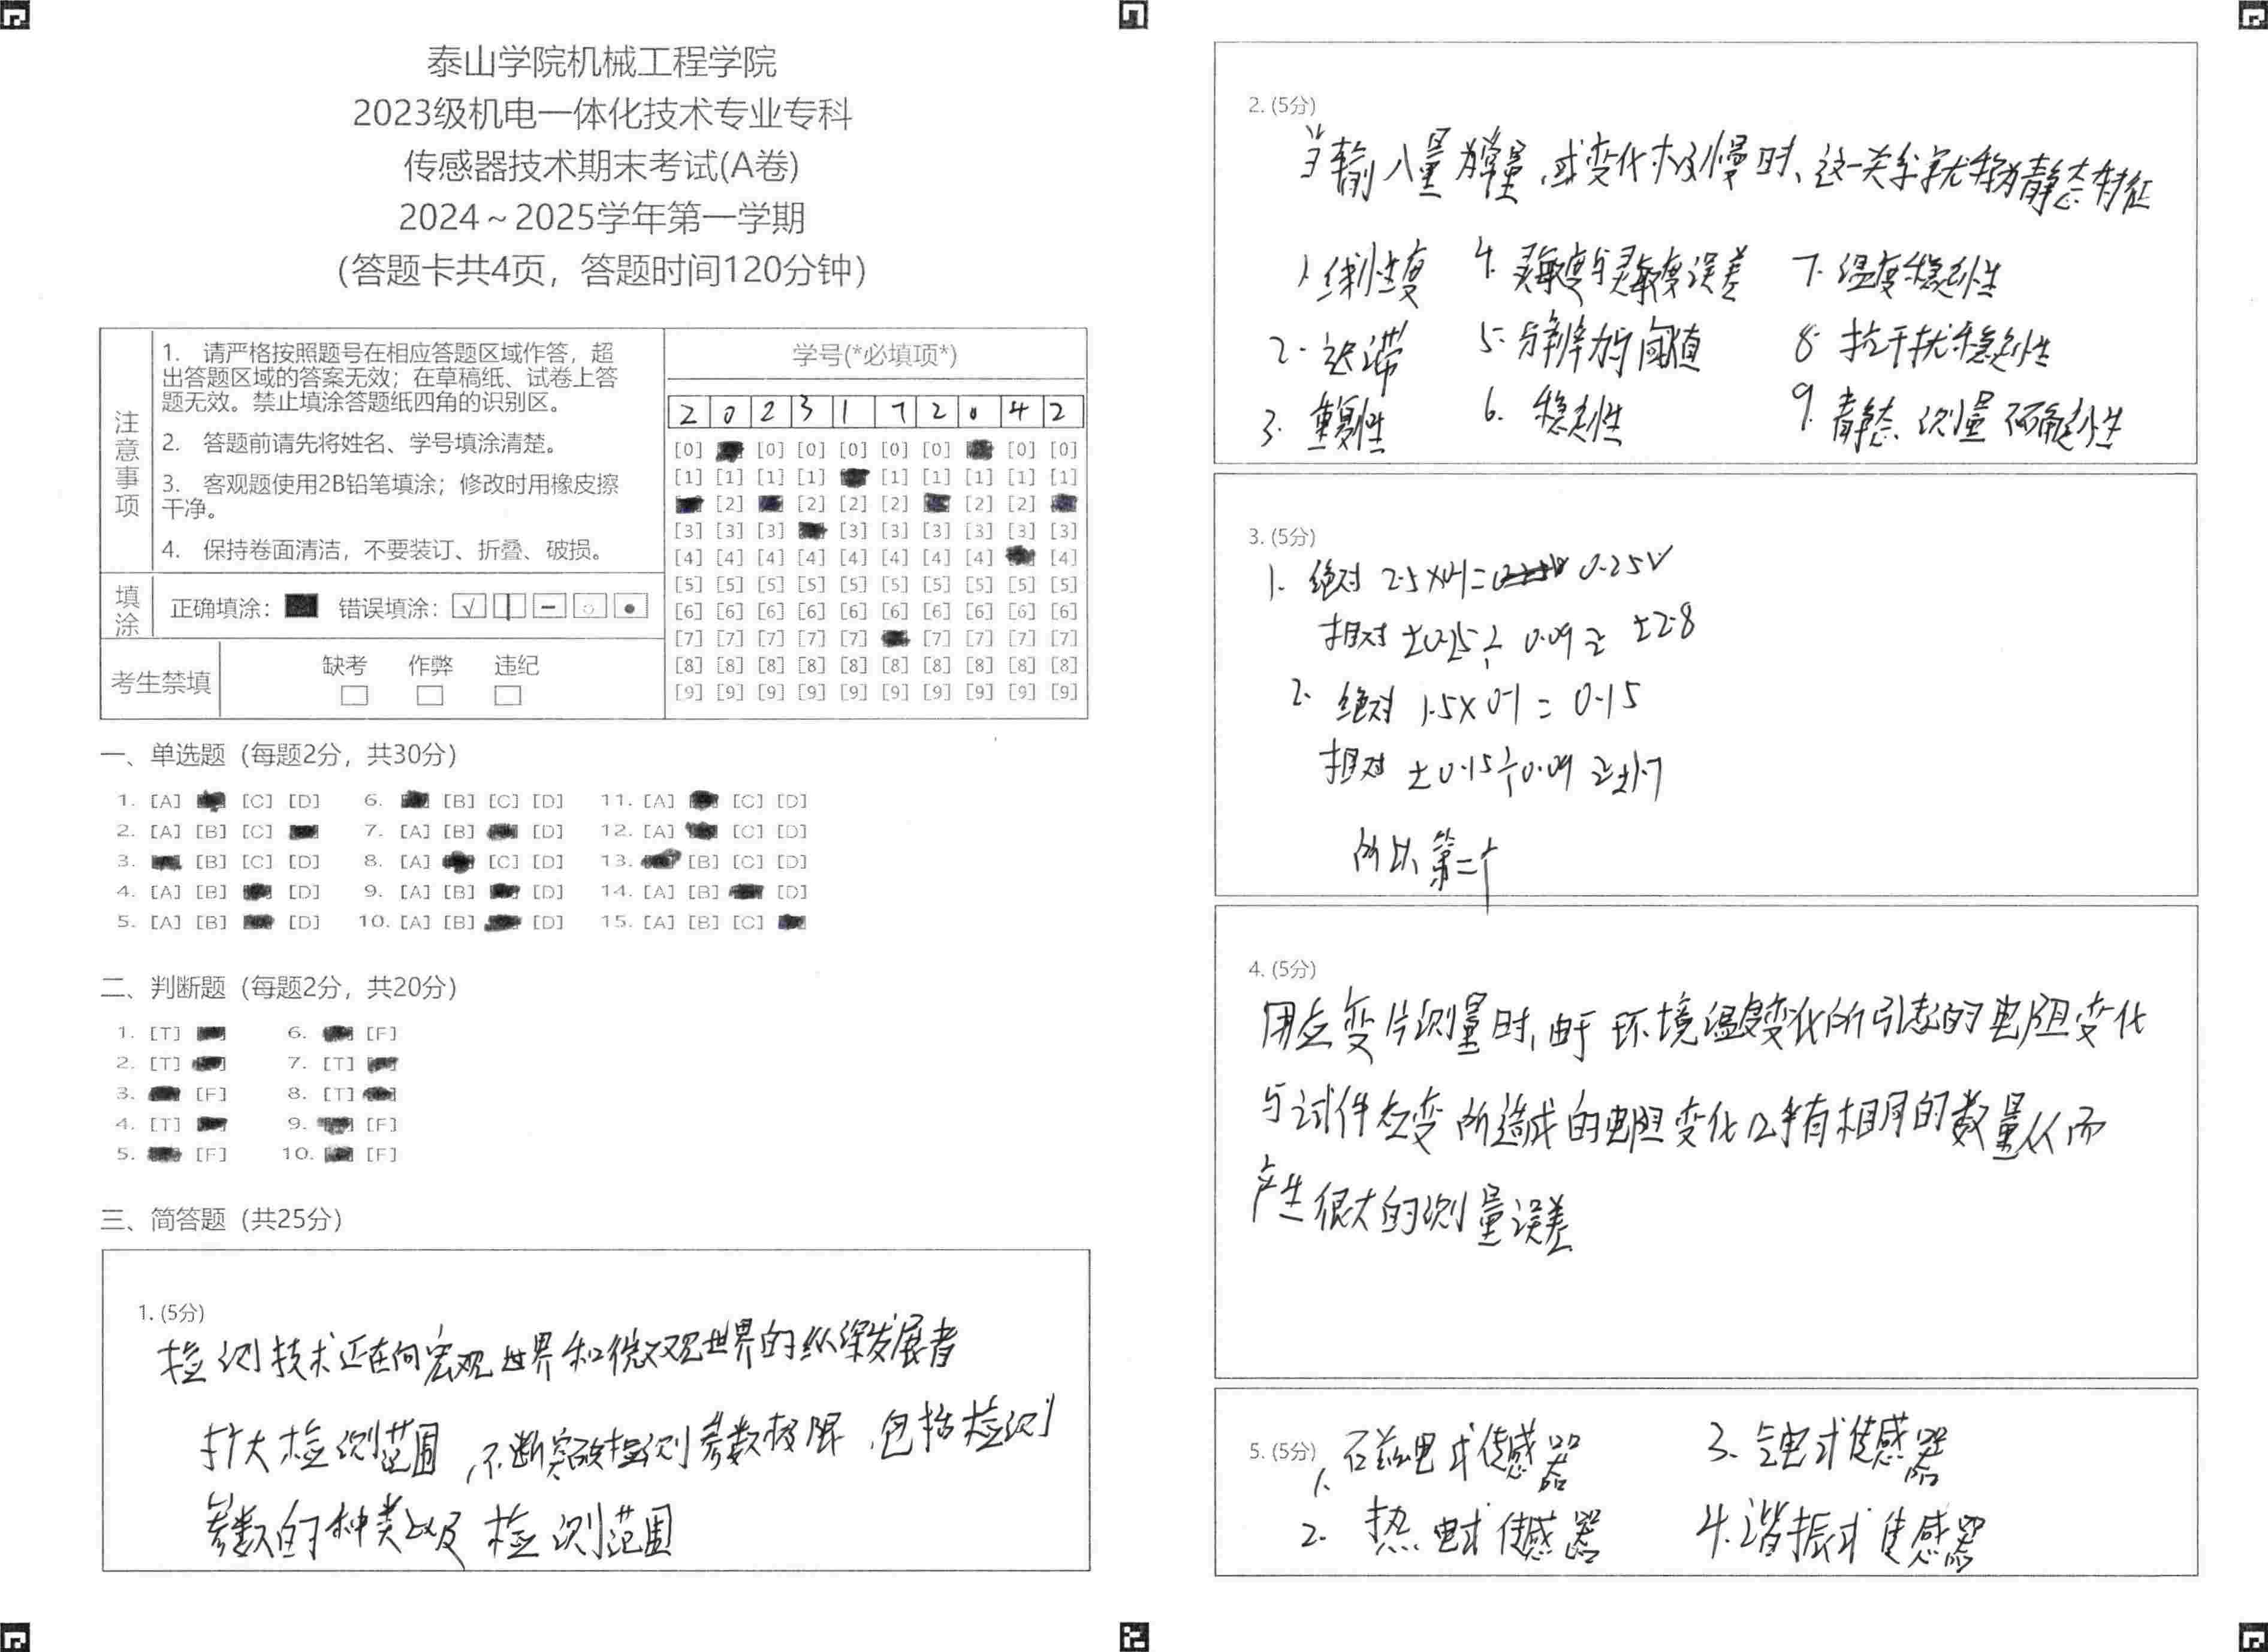 泰山学院机械工程学院
2023级机电一体化技术专业专科
传感器技术期末考试(A卷)
2024～2025学年第一学期
(答题卡共4页，答题时间120分钟)
注意事项
1. 请严格按照题号在相应答题区域作答，超
出答题区域的答案无效；在草稿纸、试卷上答
题无效。禁止填涂答题纸四角的识别区。
2. 答题前请先将姓名、学号填涂清楚。
3. 客观题使用2B铅笔填涂；修改时用橡皮擦
干净。
4. 保持卷面清洁，不要装订、折叠、破损。
填涂 正确填涂： 错误填涂：
考生禁填 缺考 作弊 违纪
学号(*必填项*)
2 0 2 3 1 7 2 0 4 2
[0] [0] [0] [0] [0] [0] [0] [0]
[1] [1] [1] [1] [1] [1] [1] [1] [1]
[2] [2] [2] [2] [2] [2]
[3] [3] [3] [3] [3] [3] [3] [3] [3]
[4] [4] [4] [4] [4] [4] [4] [4] [4]
[5] [5] [5] [5] [5] [5] [5] [5] [5] [5]
[6] [6] [6] [6] [6] [6] [6] [6] [6] [6]
[7] [7] [7] [7] [7] [7] [7] [7] [7]
[8] [8] [8] [8] [8] [8] [8] [8] [8] [8]
[9] [9] [9] [9] [9] [9] [9] [9] [9] [9]
一、单选题 (每题2分，共30分)
1. [A] [C] [D] 6. [B] [C] [D] 11. [A] [C] [D]
2. [A] [B] [C] 7. [A] [B] [D] 12. [A] [C] [D]
3. [B] [C] [D] 8. [A] [C] [D] 13. [B] [C] [D]
4. [A] [B] [D] 9. [A] [B] [D] 14. [A] [B] [D]
5. [A] [B] [D] 10. [A] [B] [D] 15. [A] [B] [C]
二、判断题 (每题2分，共20分)
1. [T] 6. [F]
2. [T] 7. [T]
3. [F] 8. [T]
4. [T] 9. [F]
5. [F] 10. [F]
三、简答题 (共25分)
1. (5分)
检测技术正在向宏观世界和微观世界的纵深发展着
扩大检测范围，不断突破检测参数极限，包括检测
参数的种类以及检测范围
2. (5分)
当输入量为常量，或变化极慢时、这一关系就称为静态特征
1. 线性度 4. 灵敏度与灵敏度误差 7. 温度稳定性
2. 迟滞 5. 分辨力与阈值 8. 抗干扰稳定性
3. 重复性 6. 稳定性 9. 静态测量不确定性
3. (5分)
1. 绝对 2.5×0.1= 0.25V
相对 ±0.25÷0.09≈ ±2.8
2. 绝对 1.5×0.1 = 0.15
相对 ±0.15÷0.09≈±1.7
所以第二个
4. (5分)
用应变片测量时，由于环境温度变化所引起的电阻变化
与试件应变所造成的电阻变化几乎有相同的数量从而
产生很大的测量误差
5. (5分)
1. 磁电式传感器 3. 电式传感器
2. 热电式传感器 4. 谐振式传感器